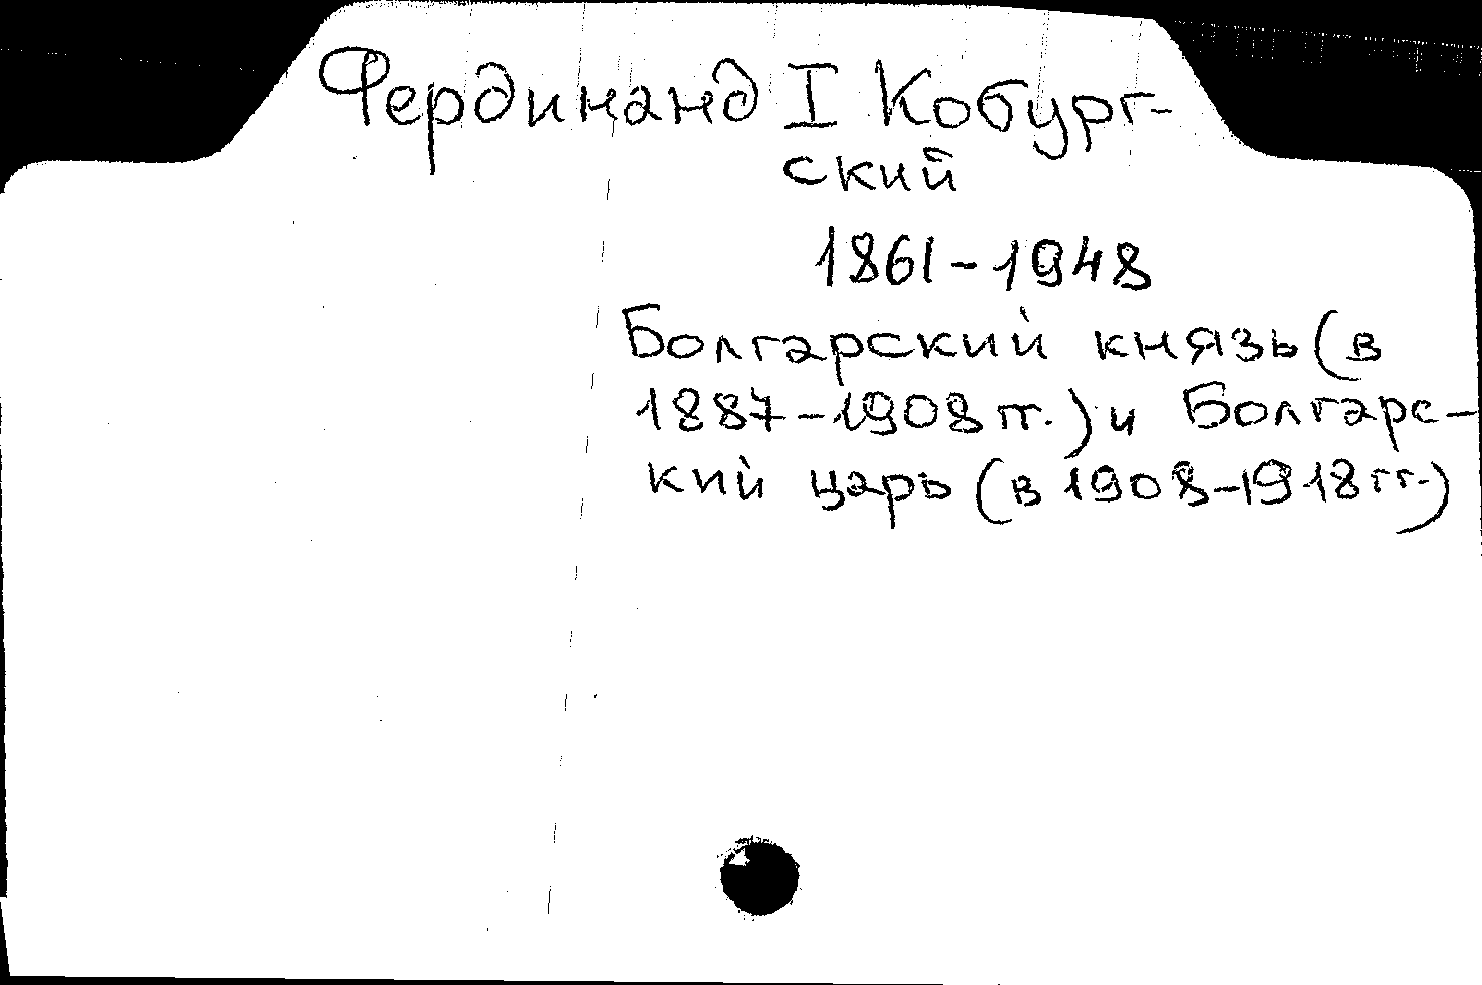 Фердинанд I Кобург-
ский
1861-1948
Болгарский князь (в
1887-1908 гг.) и Болгарс-
кий царь (в 1908-1918 гг.)